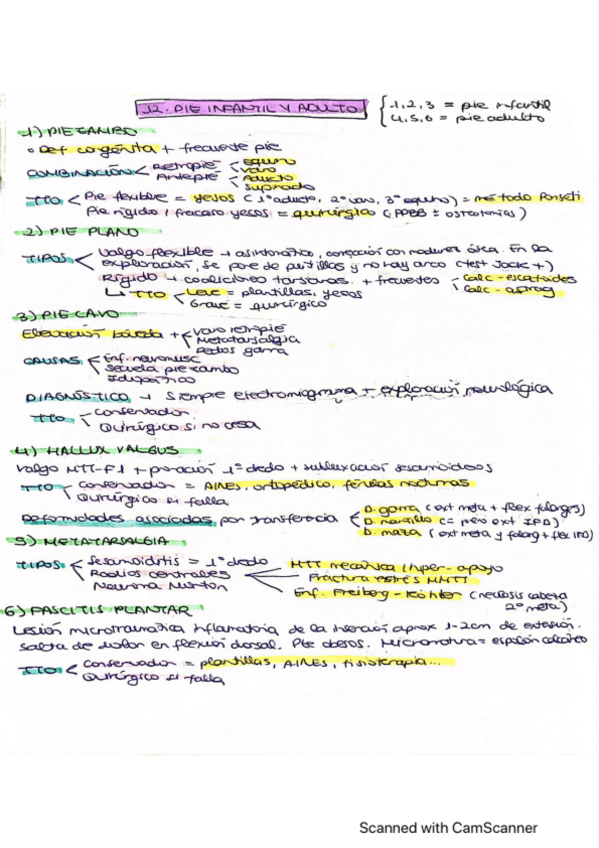 J2. PIE INFANTIL Y ADULTO { 1, 2, 3 = pie infantil
4, 5, 6 = pie adulto
1) PIE ZAMBO
Def congénita + frecuente pie
COMBINACIÓN < Retropié < equino
varo
Antepié < Aducto
Supinado
TTO < Pie flexible = yesos (1º aducto, 2º varo, 3º equino) = método Ponseti
Pie rígido / fracaso yesos = quirúrgico (PPBB ± osteotomías)
2) PIE PLANO
TIPOS < Valgo flexible → asintomático, corrección con madurez ósea. En la
exploración, se pone de puntillas y no hay arco (test Jack +)
Rígido → coaliciones tarsianas. + frecuentes < Calc-escafoides
Calc-astrag
↳ TTO < Leve = plantillas, yesos
Grave = quirúrgico
3) PIE CAVO
Elevación bóveda + < varo retropié
Metatarsalgia
Dedos garra
CAUSAS < Enf. neuromusc
Secuela pie zambo
Idiopático
DIAGNÓSTICO → Siempre electromiograma + exploración neurológica
TTO < Conservador
Quirúrgico si no cesa
4) HALLUX VALGUS
Valgo MTT-F1 + pronación 1º dedo + subluxación sesamoideos
TTO < Conservador = AINES, ortopédico, férulas nocturnas
Quirúrgico si falla
Deformidades asociadas por transferencia < D. garra (ext meta + flex falanges)
D. martillo (= pero ext IFD)
D. maza (ext meta y falang + flex IFD)
5) METATARSALGIA
TIPOS < Sesamoiditis = 1º dedo
Radios centrales < MTT mecánica / hiper-apoyo
Fractura estrés MMTT
Enf. Freiberg-Köhler (necrosis cabeza
2º meta)
Neuroma Morton
6) FASCITIS PLANTAR
Lesión microtraumática inflamatoria de la inserción aprox 1-2cm de extensión.
Salta de dolor en flexión dorsal. Pte obesos. Microrrotura = espolón calcáneo
TTO < Conservador = plantillas, AINES, fisioterapia...
Quirúrgico si falla
Scanned with CamScanner